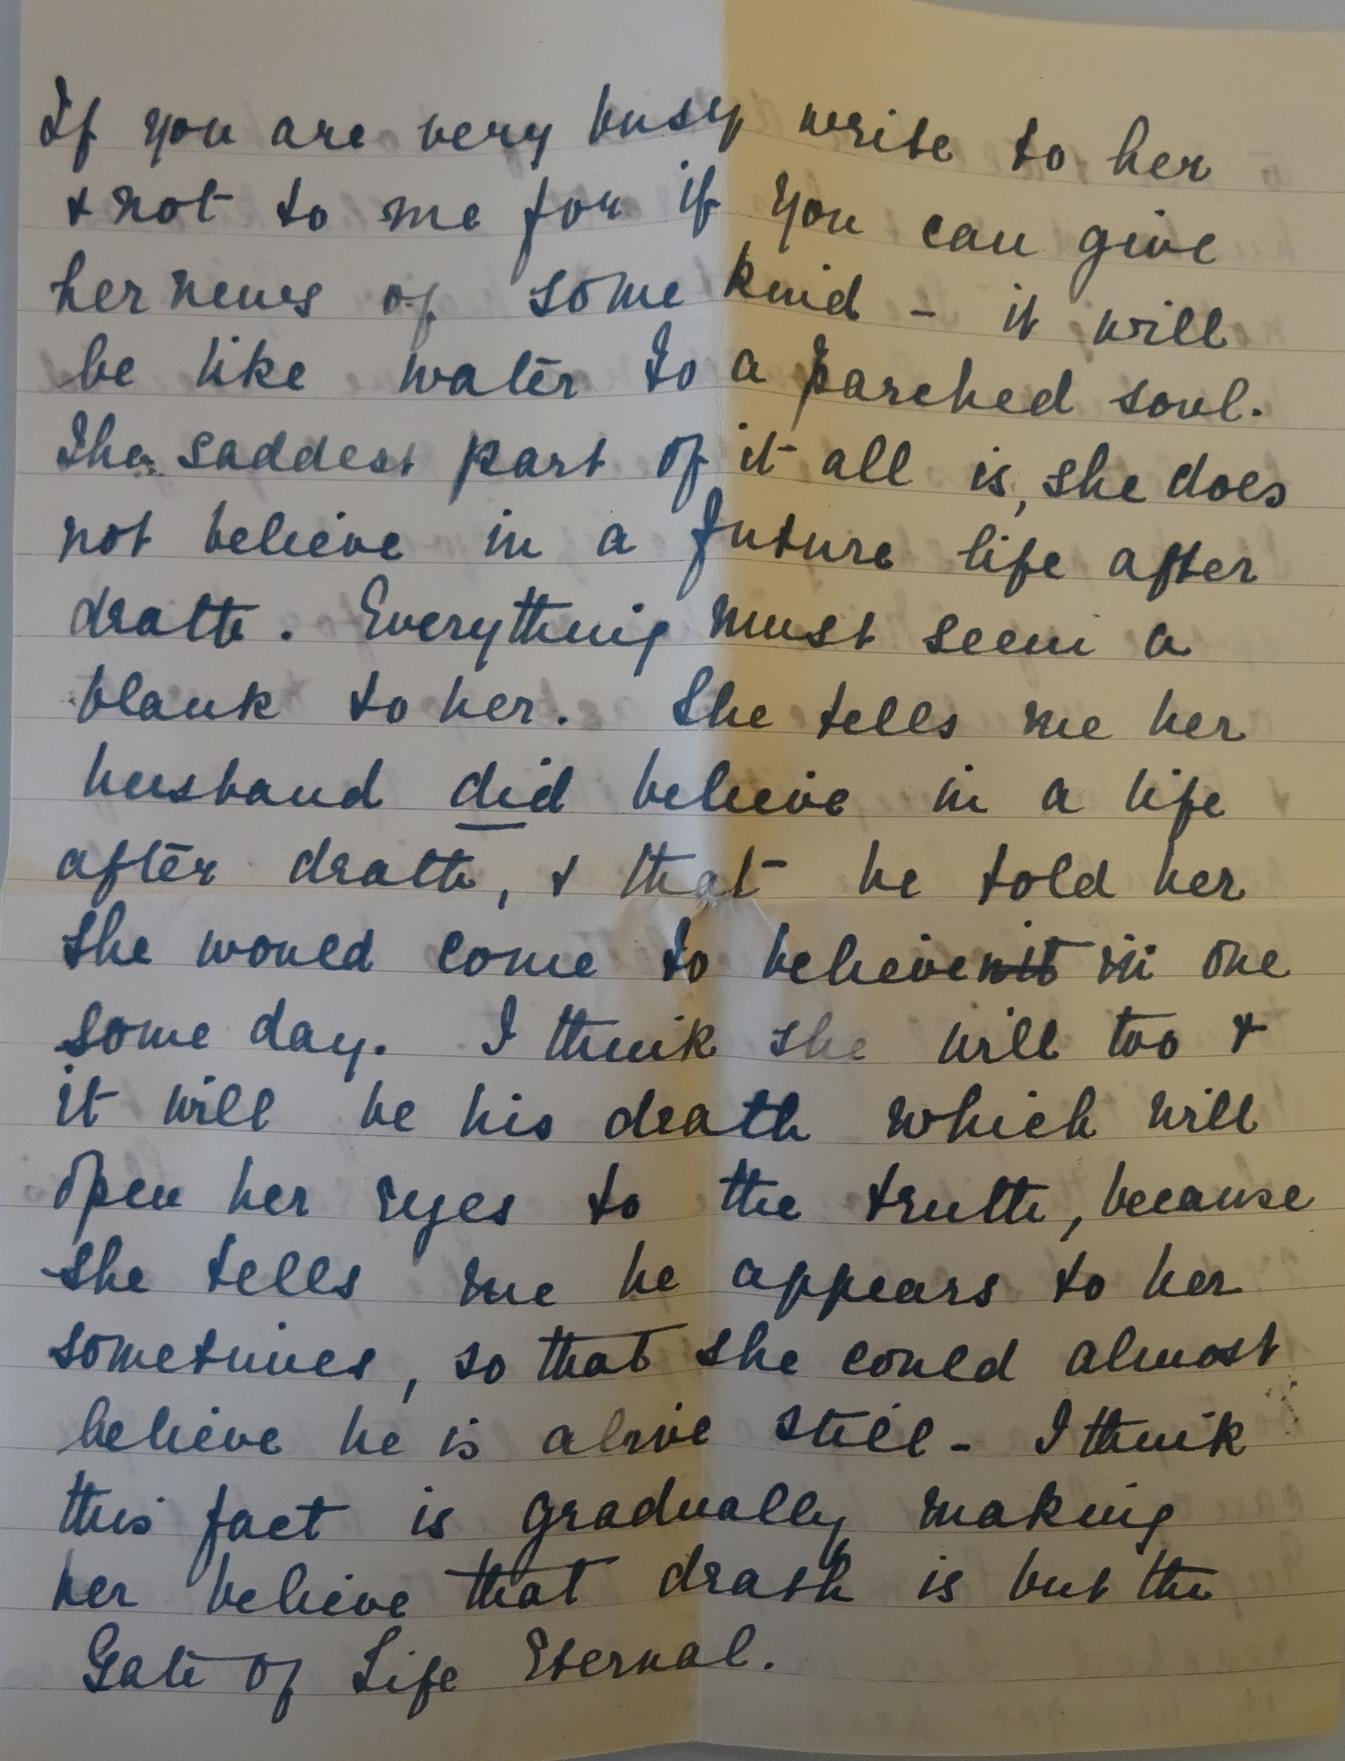 If you are very busy write to her
& not to me for if you can give
her news of some kind - it will
be like water to a parched soul.
The saddest part of it all is, she does
not believe in a future life after
death. Everything must seem a
blank to her. She tells me her
husband did believe in a life
after death, & that he told her
she would come to believe it in one
some day. I think she will too &
it will be his death which will
open her eyes to the truth, because
she tells me he appears to her
sometimes, so that she could almost
believe he is alive still - I think
this fact is gradually making
her believe that death is but the
Gate of Life Eternal.